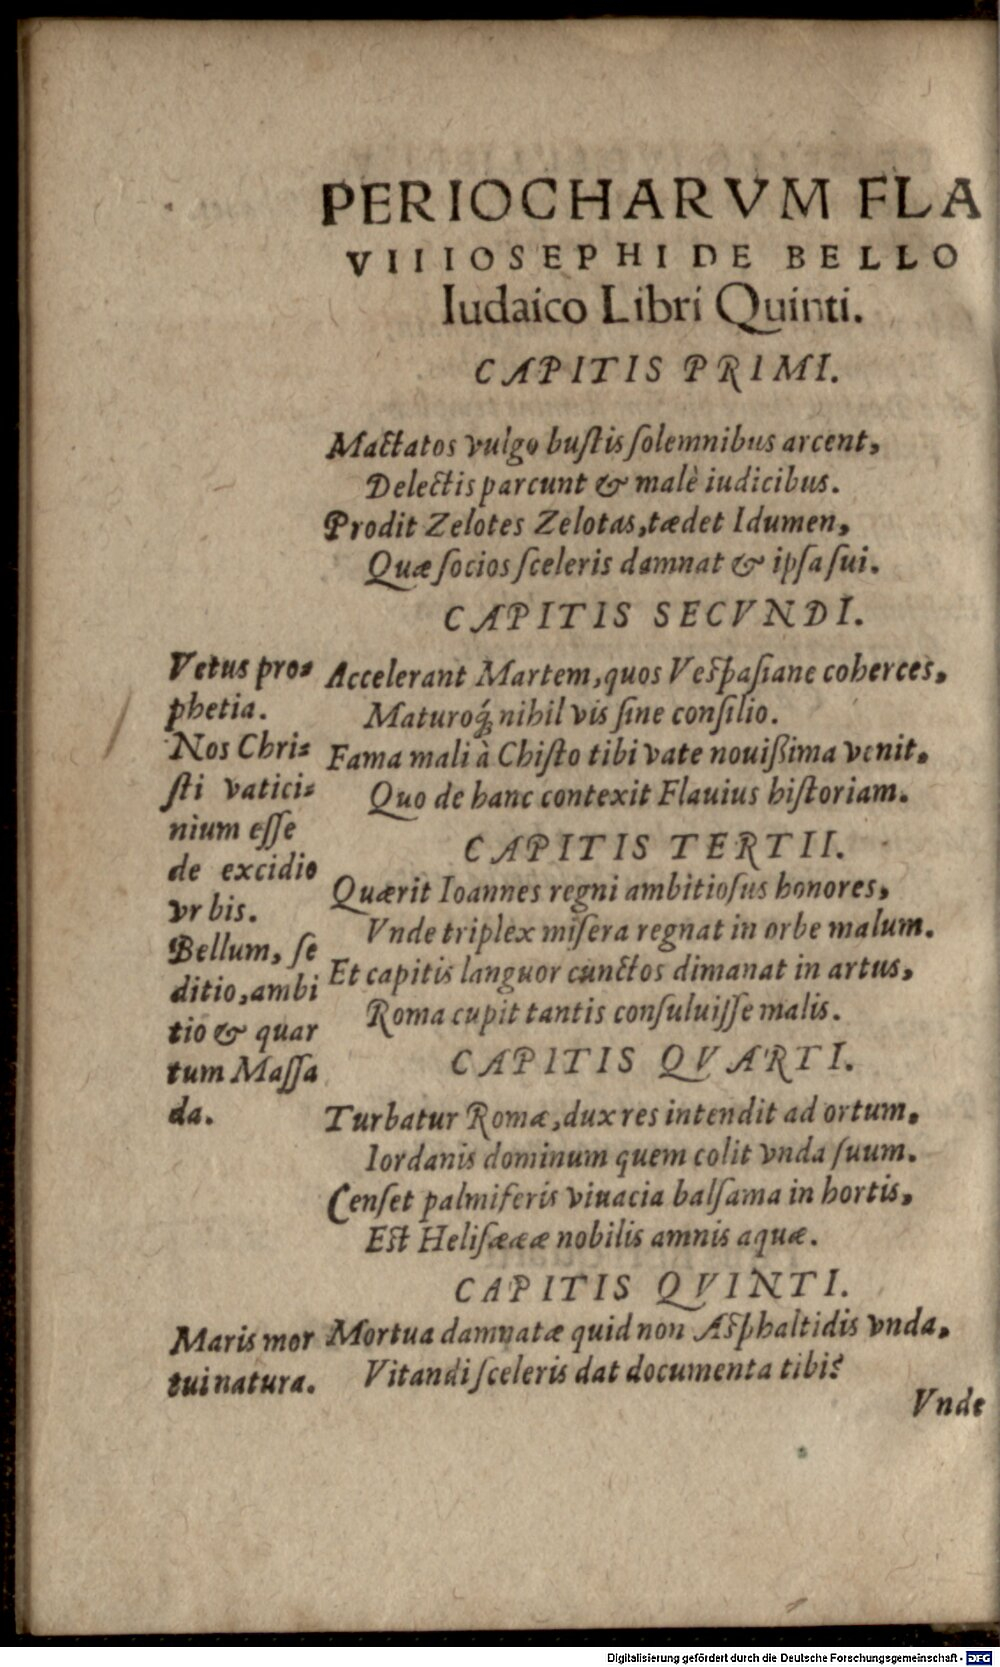 PERIOCHARVM FLA
VIIIIOSEPHI DE BELLO
Iudaico Libri Quinti.
CAPITIS PRIMI.
Mactatos vulgo bustis solemnibus arcent,
Delectis parcunt & malè iudicibus.
Prodit Zelotes Zelotas, tædet Idumen,
Quæ socios sceleris damnat & ipsa sui.
CAPITIS SECVNDI.
Vetus pro-
phetia.
Nos Chri-
sti vatici-
nium esse
de excidio
vrbis.
Bellum, se
ditio, ambi
tio & quar
tum Massa
da.
Accelerant Martem, quos Vespasiane coherces,
Maturoq́; nihil vis sine consilio.
Fama mali à Chisto tibi vate nouißima venit,
Quo de hanc contexit Flauius historiam.
CAPITIS TERTII.
Quærit Ioannes regni ambitiosus honores,
Vnde triplex misera regnat in orbe malum.
Et capitis languor cunctos dimanat in artus,
Roma cupit tantis consuluisse malis.
CAPITIS QVARTI.
Turbatur Romæ, dux res intendit ad ortum,
Iordanis dominum quem colit vnda suum.
Censet palmiferis viuacia balsama in hortis,
Est Helisæææ nobilis amnis aquæ.
CAPITIS QVINTI.
Maris mor
tui natura.
Mortua damnatæ quid non Asphaltidis vnda,
Vitandi sceleris dat documenta tibi?
Vnde
Digitalisierung gefördert durch die Deutsche Forschungsgemeinschaft - DFG